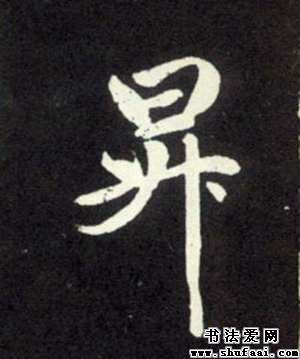 昇
书法爱网
www.shufaai.com